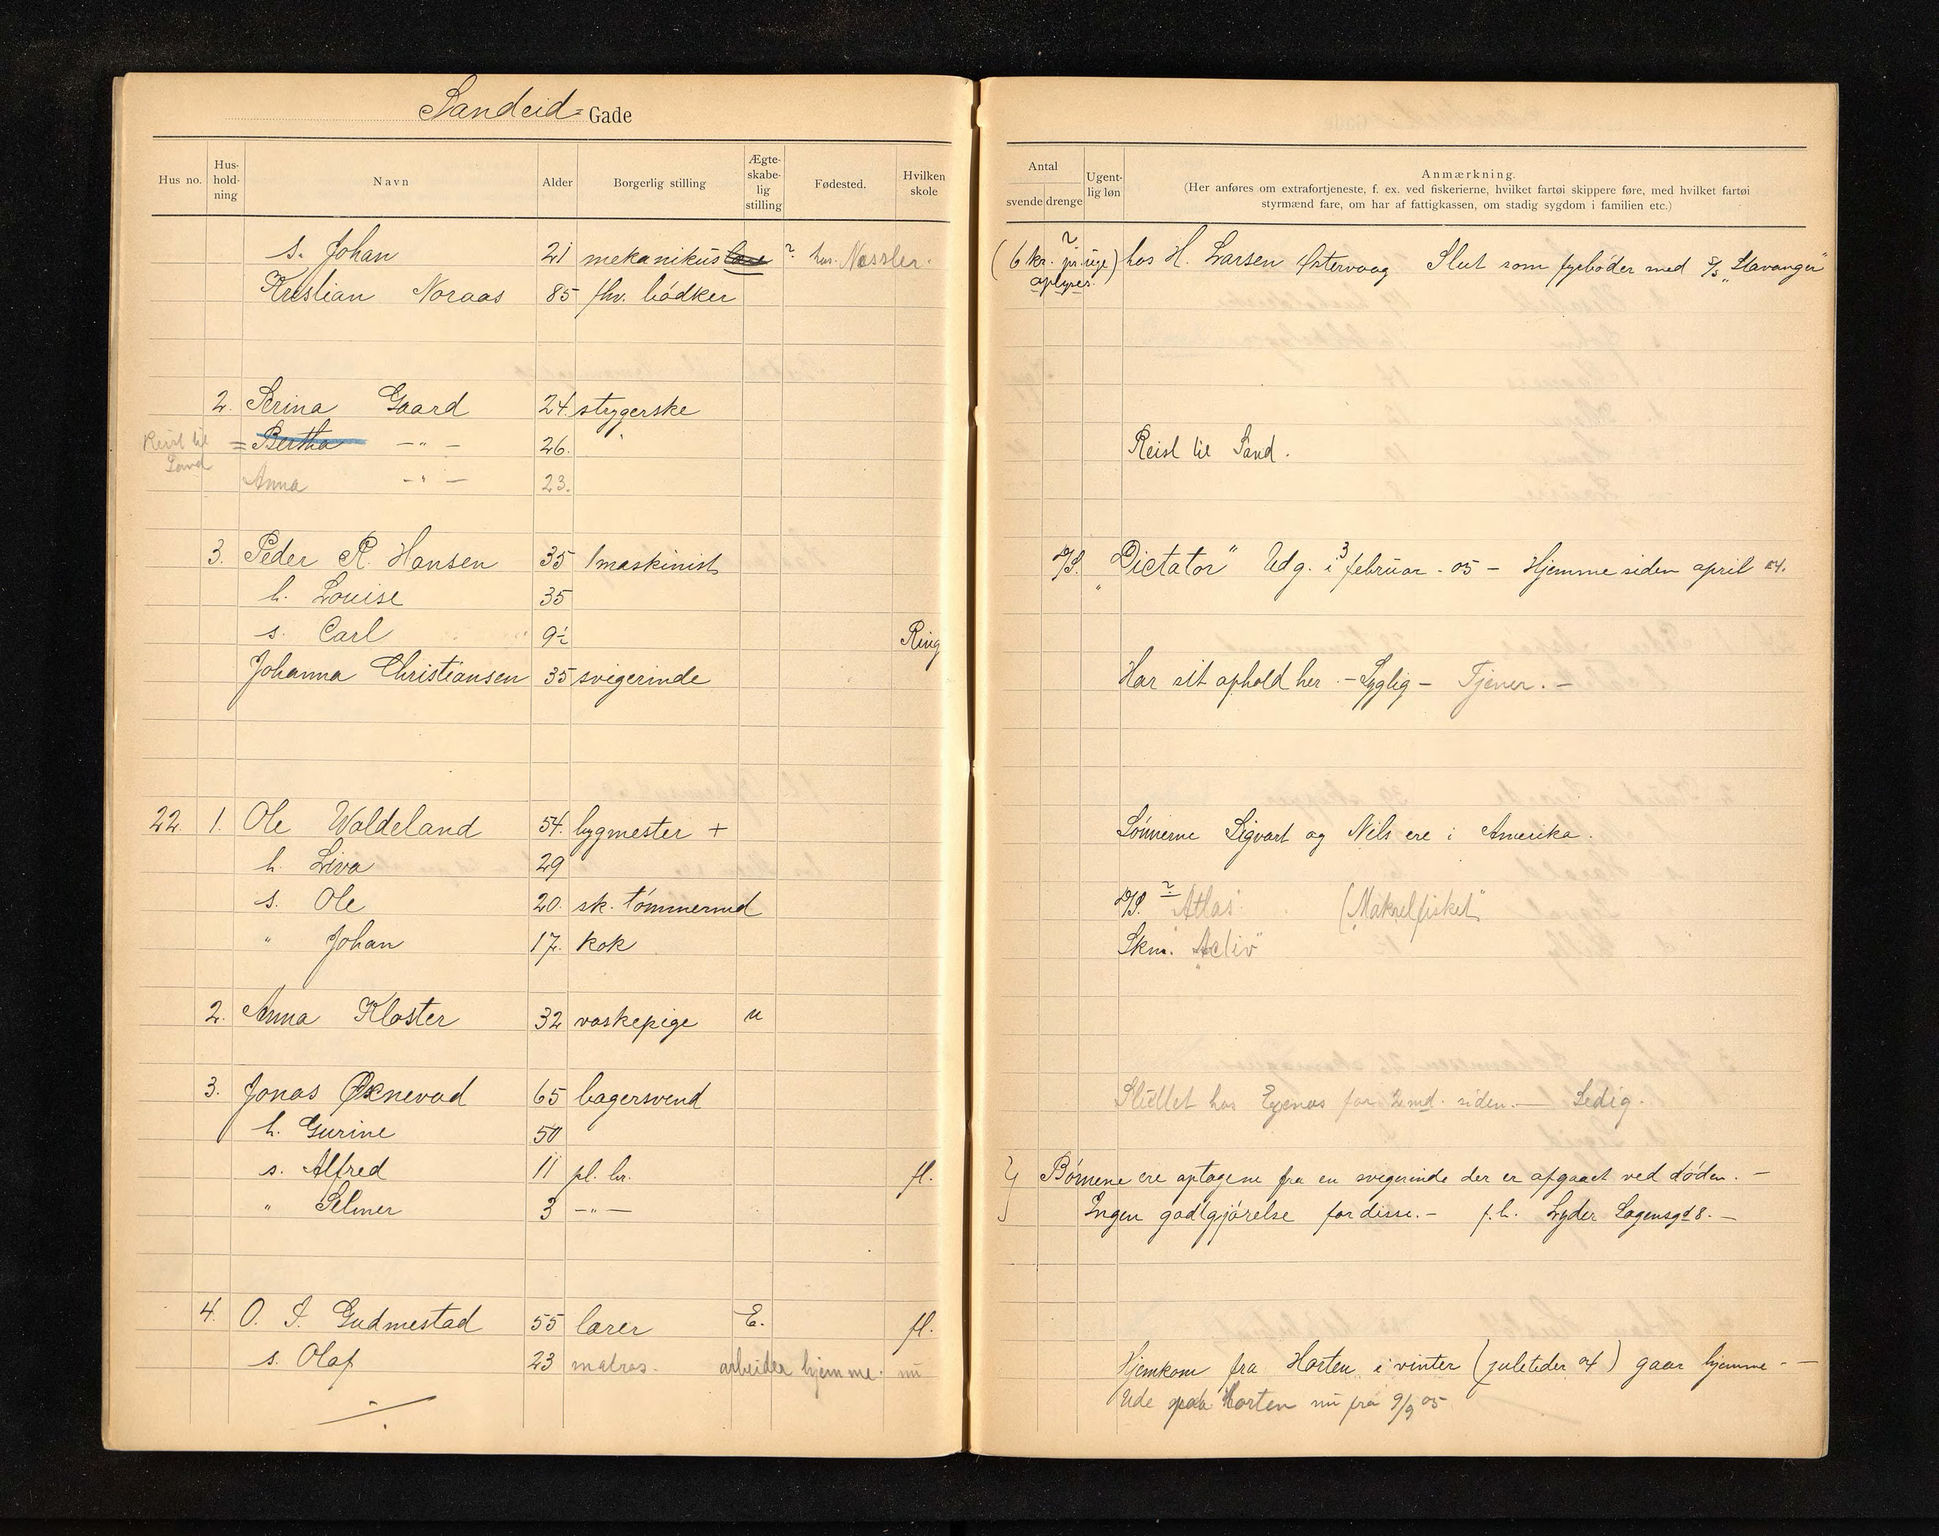 Sandeid- Gade
Hus no. Hus-hold-ning Navn Alder Borgerlig stilling Ægte-skabe-lig stilling Fødested. Hvilken skole
Antal svende drenge Ugent-lig løn Anmærkning.
(Her anføres om extrafortjeneste, f. ex. ved fiskerierne, hvilket fartøi skippere føre, med hvilket fartøi
styrmænd fare, om har af fattigkassen, om stadig sygdom i familien etc.)
s. Johan 21 mekanikus ? hos. Nessler. (6 kr. pr. uge) ? hos H. Larsen Østervaag Slut som fyrbøder med S/S "Stavanger"
oplyses.
Kristian Noraas 85 fhv. bødker
2. Serina Gaard 24. strygerske
Reist til Sand = Bertha -"- 26. Reist til Sand.
Anna -"- 23.
3. Peder R. Hansen 35 1 maskinist D/S. "Dictator" Udg. i 3 februar - 05 - Hjemme siden april 04.
h. Louise 35
s. Carl 9½ Ring
Johanna Christiansen 35 svigerinde Har sit ophold her. - Syglig - Tjener. -
22 1. Ole Waldeland 54. bygmester + Sønnerne Sigvart og Nils ere i Amerika.
h. Liva 29
s. Ole 20. sk. tømmermd D/S. ? "Atlas" ("Makrelfisket"
" Johan 17. kok Skn. "Activ"
2. Anna Kloster 32 vaskepige u
3. Jonas Øxnevad 65 bagersvend Sluttet hos for 2 md. siden. - Ledig.
h. Gurine 50
s. Alfred 11 pl. br. fl. } Børnene ere optagene fra en svigerinde der er afgaaet ved døden. -
" Selmer 3 -"- Ingen godtgjørelse for disse. - f. h. Lyder Sagensgd 8. -
4. O. S. Gudmestad 55 lærer E. fl.
s. Olaf 23 matros. arbeider hjemme. nu Hjemkom fra Horten i vinter (juletider 04) gaar hjemme. -
Ude paa Horten nu fra 9/9 05